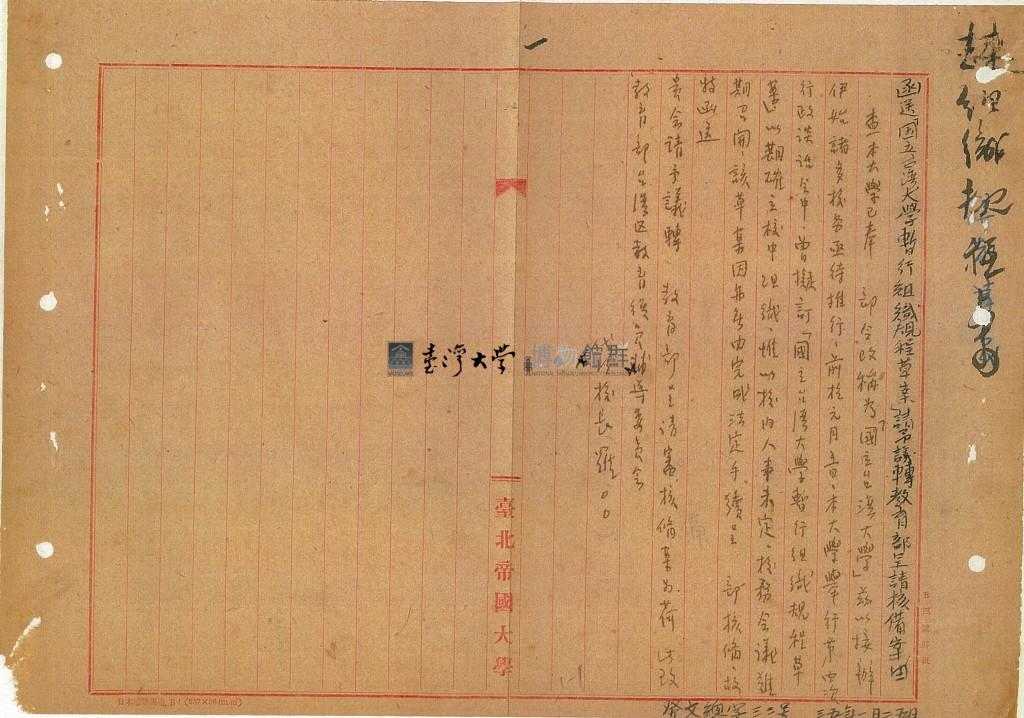 函送「國立台灣大學暫行組織規程草案」請予議轉教育部呈請核備案由
查本大學已奉 部令改稱為「國立台灣大學」茲以接辦
伊始諸多校務亟待推行，前於元月五日，本大學舉行第四次
行政談話會中，曾擬訂「國立台灣大學暫行組織規程草
案」以期確立校中組織，惟以校內人事未定，校務會議難
期召開，該草案因無由完成法定手續呈 部核備，故
特函送
貴會請予議轉 教育部呈請審核備案為荷 此致
教育部台灣區教育復員輔導委員會
代校長羅〇〇
臺北帝國大學
臺灣大學
博物館群
發文總字三二号
三五年一月二五日